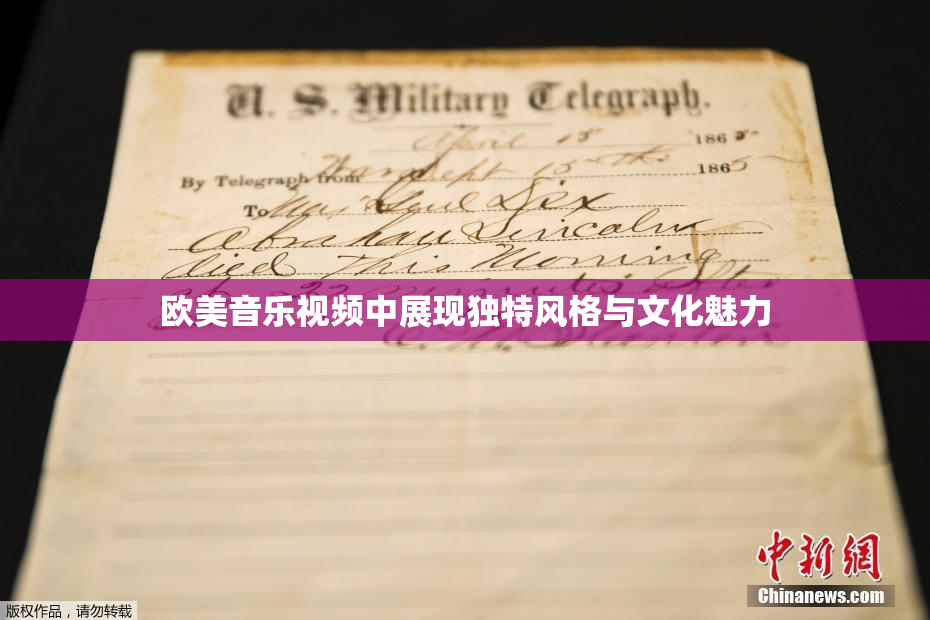 U. S. Military Telegraph.
April 15 1865
By Telegraph from War Dept 15th 1865
To Maj Genl Dix
Abraham Lincoln
died This Morning
at 22 minutes after
欧美音乐视频中展现独特风格与文化魅力
E. M. Stanton
中新网
Chinanews.com
版权作品，请勿转载